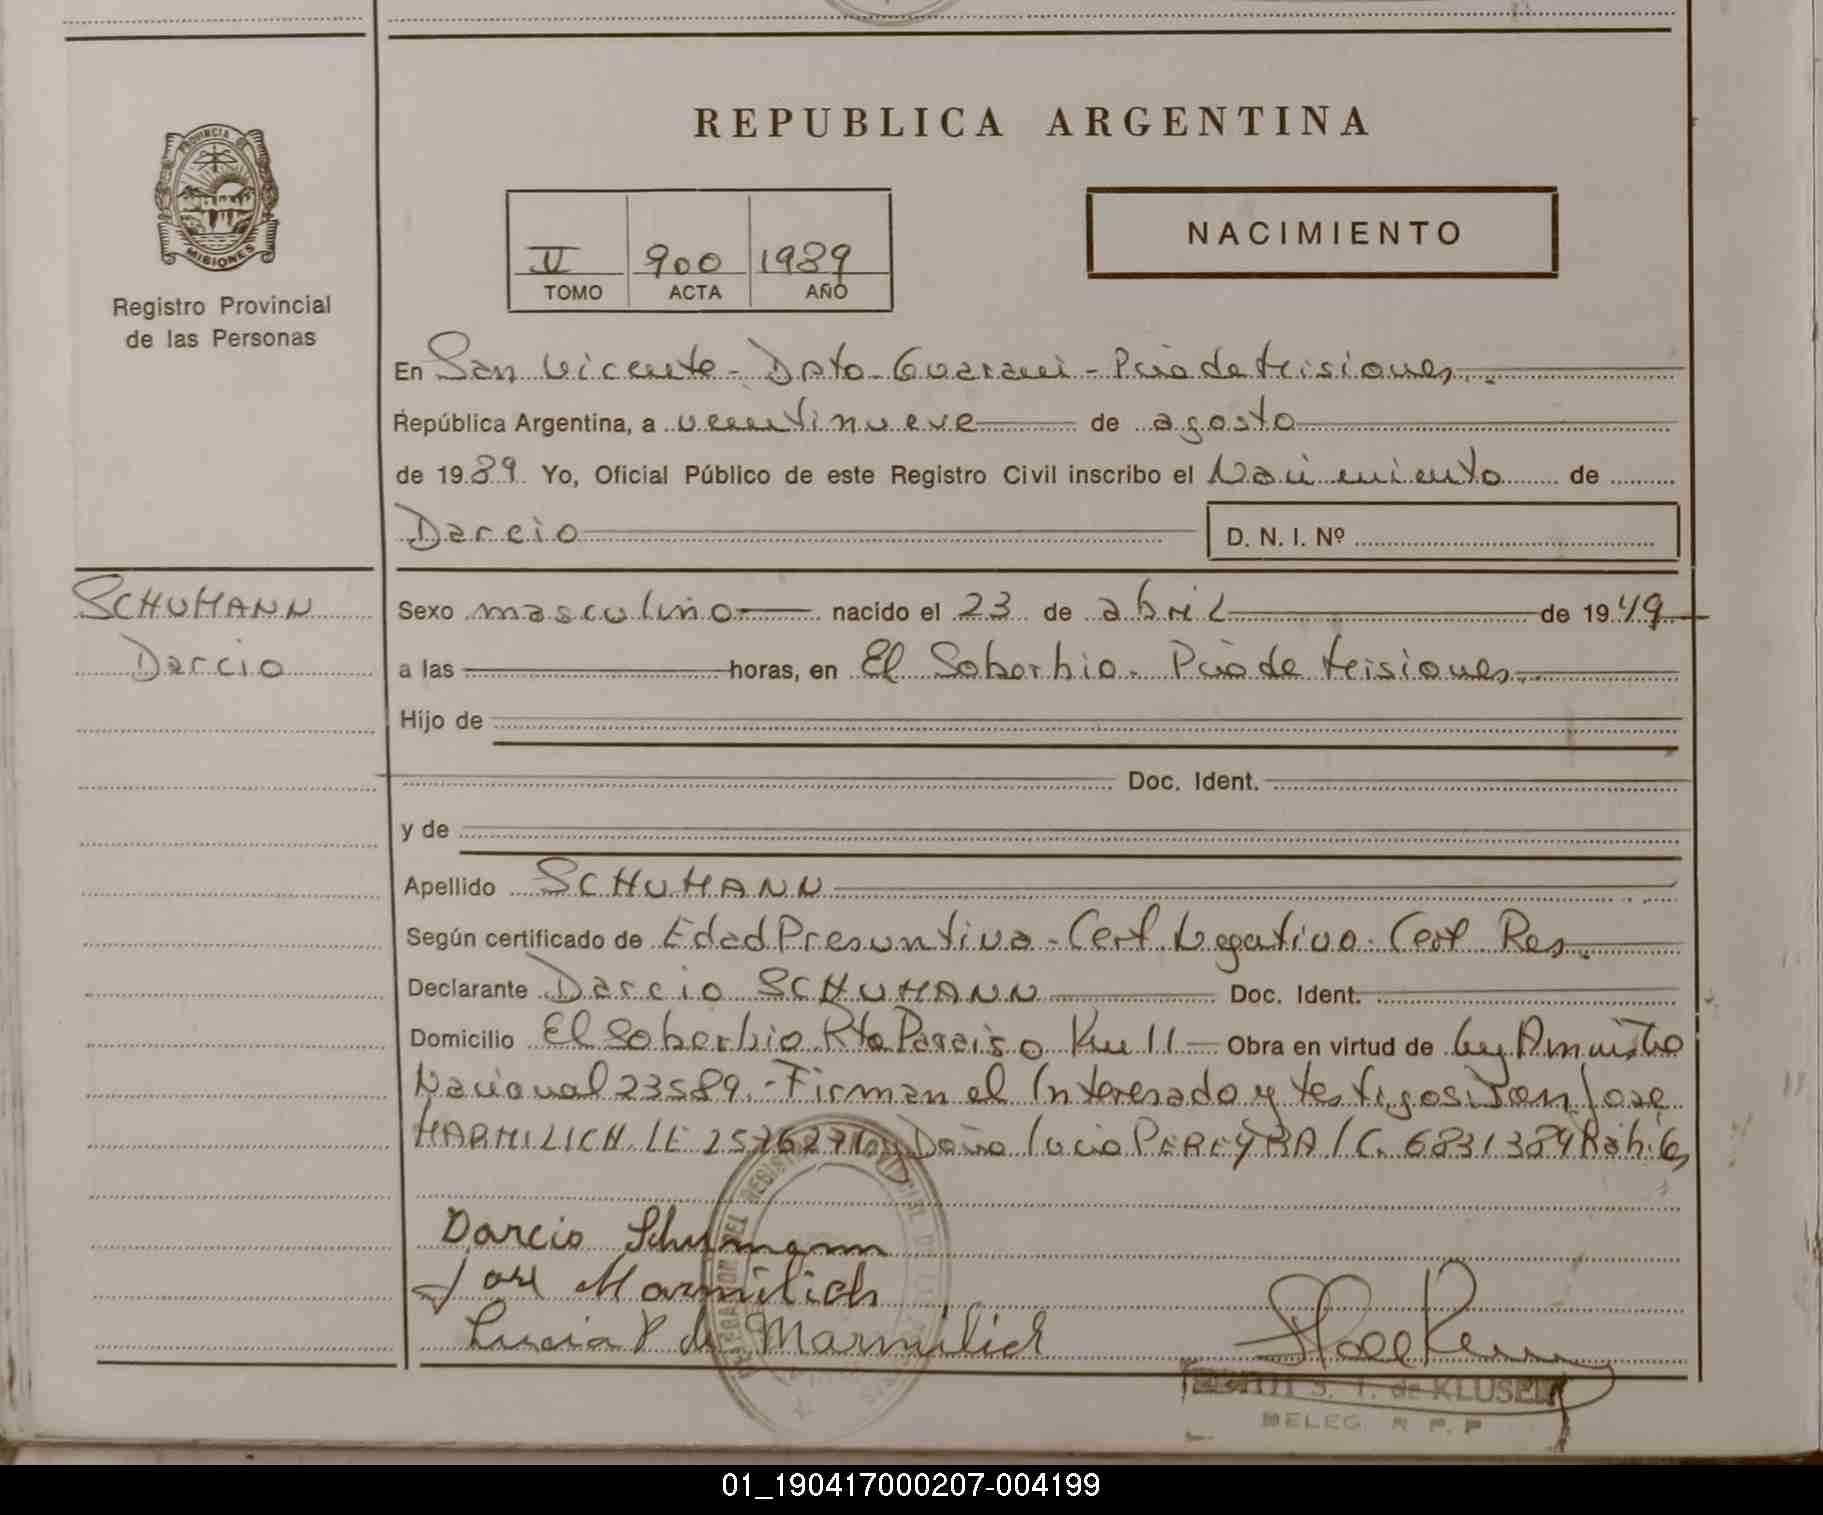 REPUBLICA ARGENTINA
PROVINCIA DE
MISIONES
Registro Provincial
de las Personas
II 900 1989
TOMO ACTA AÑO
NACIMIENTO
En San Vicente - Dpto Guarani - Pcia de Misiones
República Argentina, a veintinueve de agosto
de 1989 Yo, Oficial Público de este Registro Civil inscribo el Nacimiento de
Darcio D. N. I. Nº
SCHUMANN
Darcio
Sexo masculino nacido el 23 de abril de 1949
a las horas, en El Soberbio - Pcia de Misiones
Hijo de
Doc. Ident.
y de
Apellido SCHUMANN
Según certificado de Edad Presuntiva - Cert Negativo - Cert Res
Declarante Darcio SCHUMANN Doc. Ident.
Domicilio El Soberbio Rto Paraiso Km 11 Obra en virtud de Ley Amnistia
Nacional 23589. - Firman el Interesado y testigos: Don Jose
MARMILICH LE y Doña Lucia PEREYRA LC. 6831384
Darcio Schumann
Jose Marmilich
Lucia P de Marmilich
S. T. de KLUSEN
DELEG. R. P. P
01_190417000207-004199